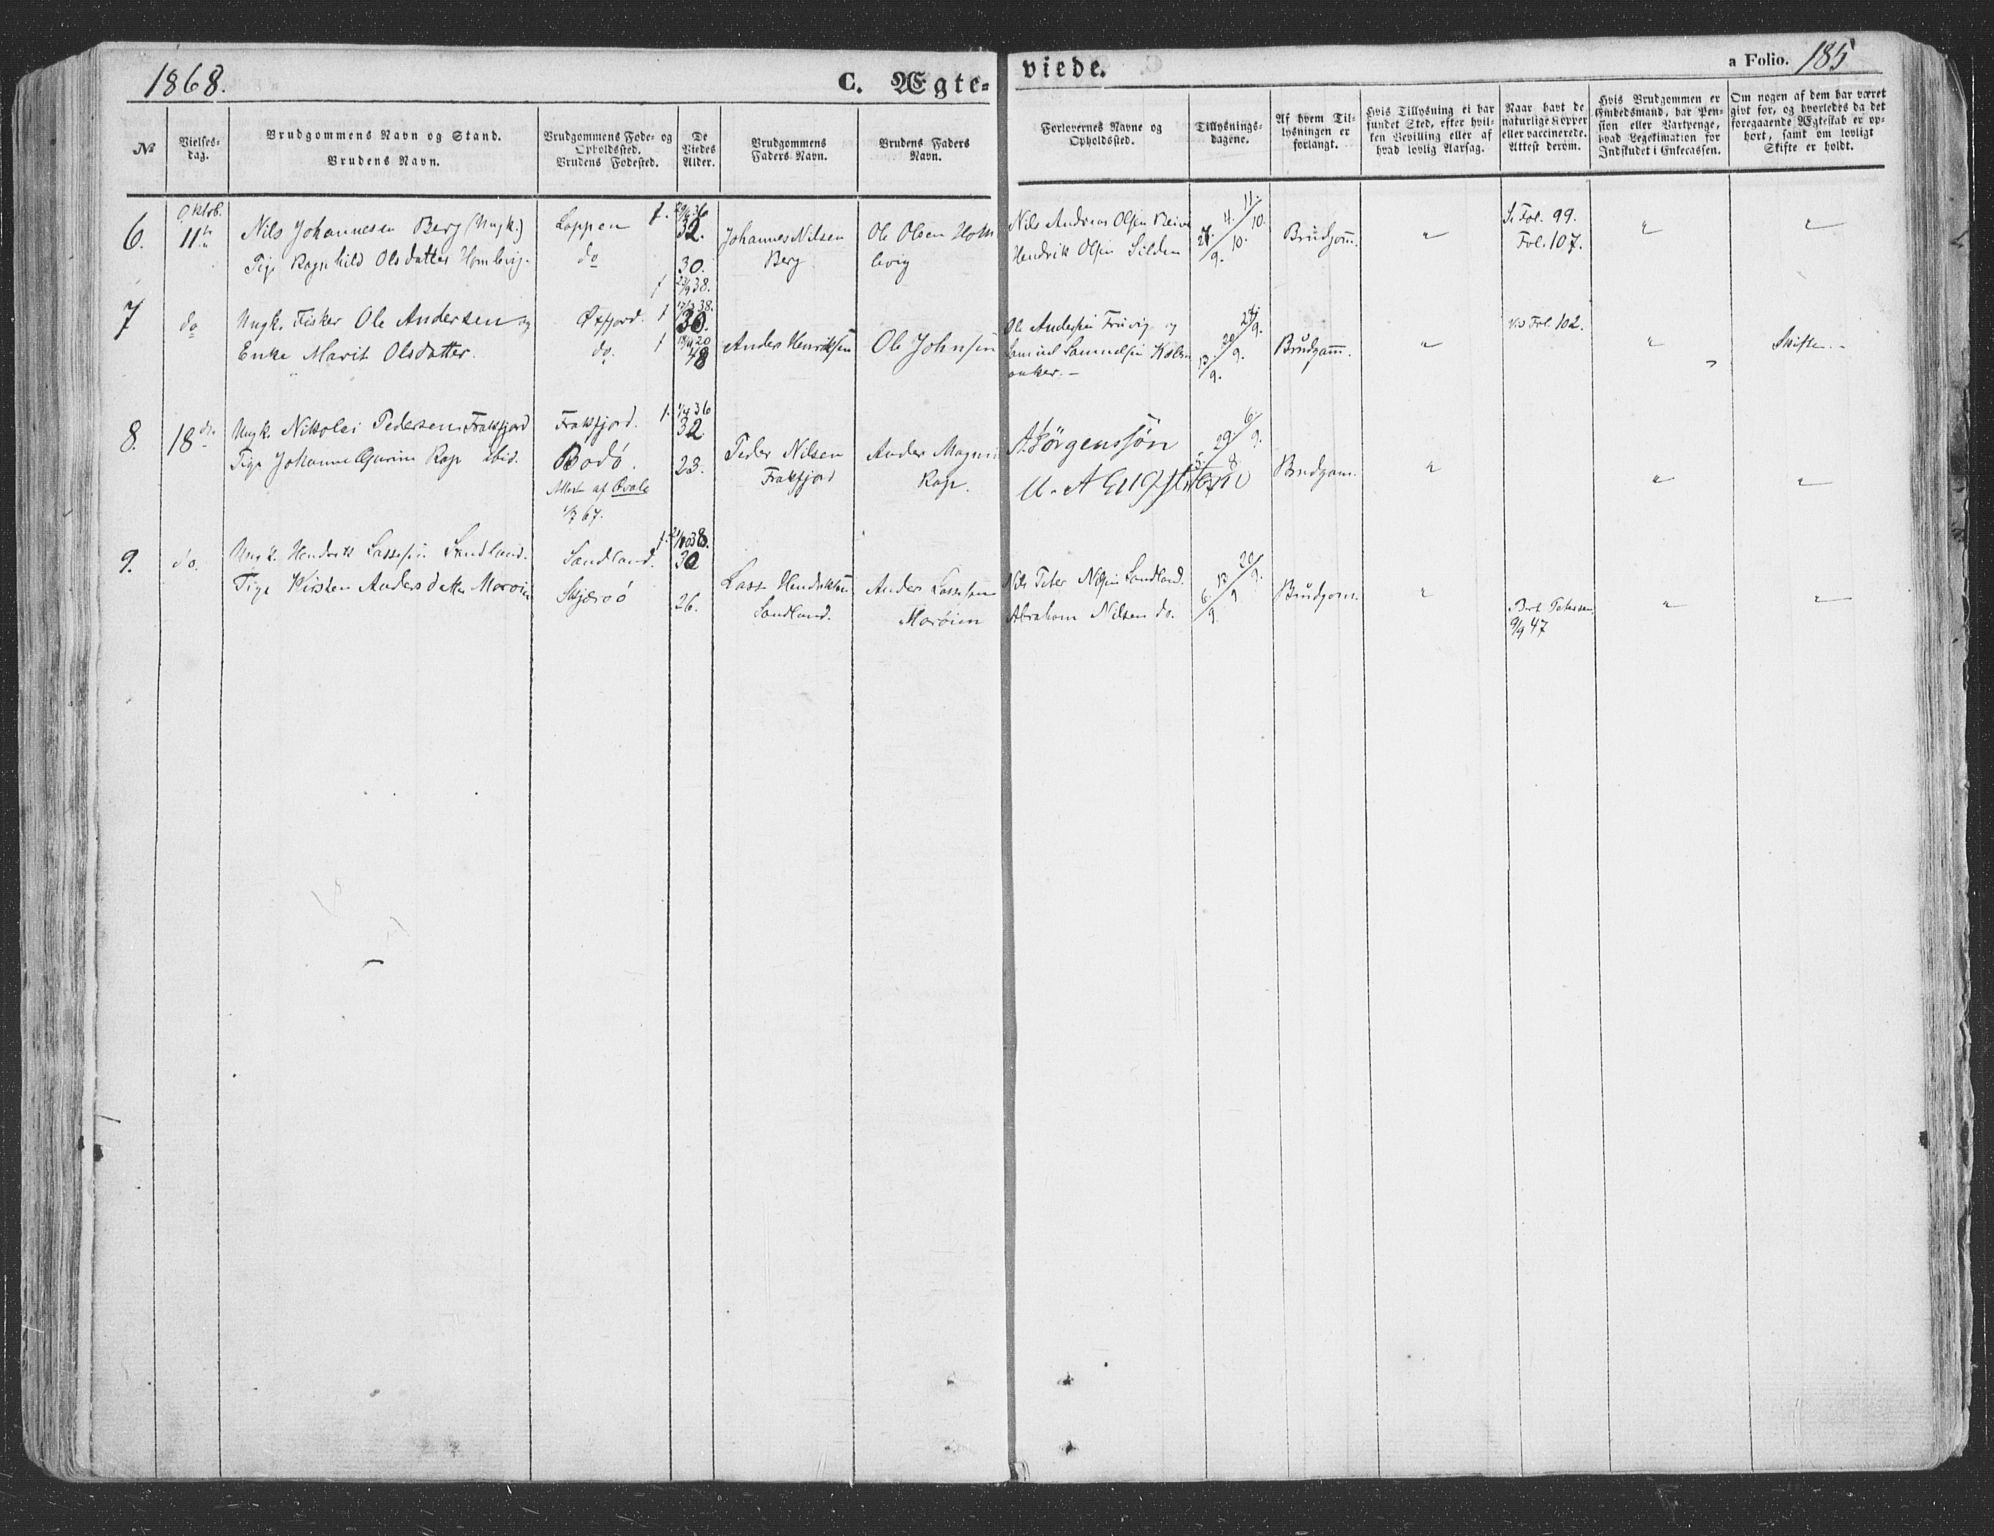 1868.
C. Ægte-
viede.
a Folio. 185
№
Vielses-
dag.
Brudgommens Navn og Stand.
Brudens Navn.
Brudgommens Føde- og
Opholdssted.
Brudens Fødested.
De
Viedes
Alder.
Brudgommens
Faders Navn.
Brudens Faders
Navn.
Forlovernes Navne og
Opholdssted.
Tillysnings-
dagene.
Af hvem Til-
lysningen er
forlangt.
Hvis Tillysning ei har
fundet Sted, efter hvil-
ken Bevilling eller af
hvad lovlig Aarsag.
Naar havt de
naturlige Kopper
eller vaccinerede.
Attest derom.
Hvis Brudgommen er
Embedsmand, har Pen-
sion eller Vartpenge,
hvad Legitimation for
Indskudet i Enkecassen.
Om nogen af dem har været
givt før, og hvorledes da det
foregaaende Ægteskab er op-
hørt, samt om lovligt
Skifte er holdt.
6.
Oktob.
11te
Nils Johannesen Berg (Ungk.)
Pige Ragnhild Olsdatter
Loppen
do
32.
30.
Johannes Nilsen
Berg
Ole Olsen
Nils Andreas Olsen
Hendrik Olsen Silden
27/9. 4/10. 11/10.
Brudgom.
"
Fol. 99.
Fol. 107.
"
"
7
do
Ungk. Fisker Ole Andersen og
Enke Marit Olsdatter.
Øxfjord.
do.
30.
48
Anders Henriksen
Ole Johnsen
Ole Andersen og
Samuel Samuelsen
13/9. 20/9. 27/9.
Brudgom.
"
Fol. 102.
"
Skifte.
8.
18de
Ungk. Nikolai Pedersen Frakfjord
Pige Johanne Gurine Rap ibid.
Frakfjord.
Bodø.
Attest af
67.
32
23.
Peder Nilsen
Frakfjord
Anders
Rap.
Jörgenssön
29/8 6/9.
Brudgom.
"
"
"
9.
do.
Ungk. Hendrik Lassesen Sandland.
Pige Kirsten Andersdatter
Sandland.
Skjærvø
30
26.
Lasse Hendriksen
Sandland.
Anders Lassesen
Nils Peter Nilsen Sandland.
Abraham Nilsen do.
6/9. 13/9. 20/9.
Brudgom.
"
9/9 47
"
"